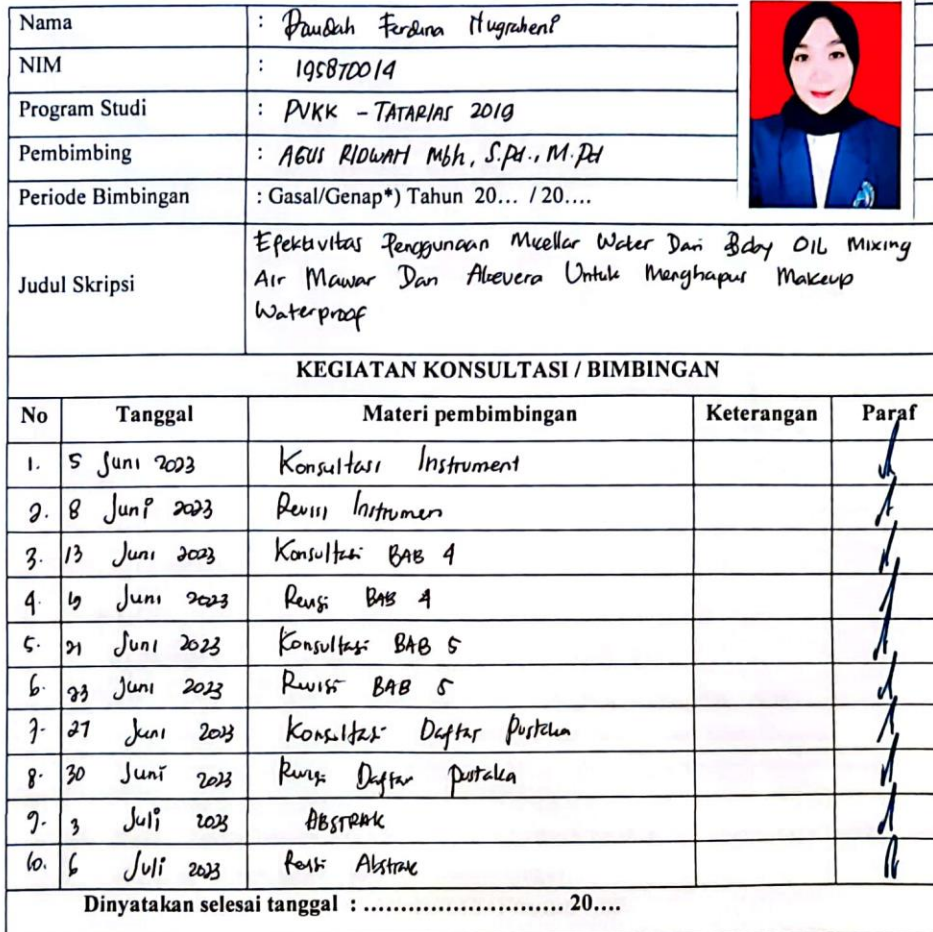 Nama : Daudah Ferdina Nugraheni
NIM : 195870014
Program Studi : PVKK - TATARIAS 2019
Pembimbing : AGUS RIDWAN Mbh, S.Pd., M.Pd
Periode Bimbingan : Gasal/Genap*) Tahun 20... / 20....
Judul Skripsi
Efektivitas Penggunaan Micellar Water Dan Baby OIL Mixing
Air Mawar Dan Aloevera Untuk Menghapus Makeup
Waterproof
KEGIATAN KONSULTASI / BIMBINGAN
No Tanggal Materi pembimbingan Keterangan Paraf
1. 5 Juni 2023 Konsultasi Instrument
2. 8 Juni 2023 Revisi Instrumen
3. 13 Juni 2023 Konsultasi BAB 4
4. Juni 2023 Revisi BAB 4
5. 21 Juni 2023 Konsultasi BAB 5
6. 23 Juni 2023 Revisi BAB 5
7. 27 Juni 2023 Konsultasi Daftar Pustaka
8. 30 Juni 2023 Revisi Daftar Pustaka
9. 3 Juli 2023 ABSTRAK
10. 6 Juli 2023 Revisi Abstrak
Dinyatakan selesai tanggal : ........................... 20....